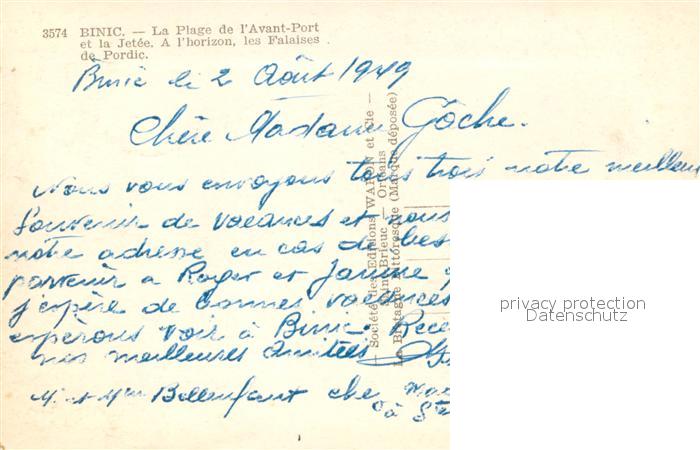 3574 BINIC. — La Plage de l'Avant-Port
et la Jetée. A l'horizon, les Falaises
de Pordic.
Binic le 2 Août 1949
Chère Madame Gôche.
Nous vous envoyons tous trois notre meilleur
souvenir de vacances et nous
notre adresse en cas de bes
parvenir a Roger et Janine
j'espère de bonnes vacances
espèrons voir à Binic. Rece
nos meilleures amitiés
M. et Mme Bellenfant che
à Ste
— Société des Editions WARON et Cie —
Saint-Brieuc — Orléans
La Bretagne Pittoresque (Marque déposée)
privacy protection
Datenschutz